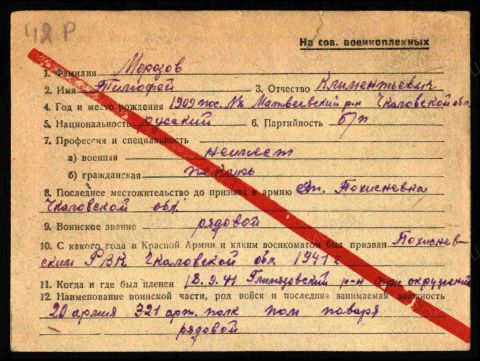 42 Р
На сов. военнопленных
1. Фамилия Морозов
2. Имя Тимофей 3. Отчество Климентьевич
4. Год и место рождения 1909 пос. Матвеевский р-н Чкаловской обл.
5. Национальность русский 6. Партийность б/п
7. Профессия и специальность
а) военная неимеет
б) гражданская пекарь
8. Последнее местожительство до призыва в армию
Чкаловской обл.
9. Воинское звание рядовой
10. С какого года в Красной Армии и каким военкоматом был призван
ским РВК Чкаловской обл. 1941 г
11. Когда и где был пленен 9.41 р-н при окружении
12. Наименование воинской части, род войск и последняя занимаемая должность
20 армия 321 арт. полк пом повара
рядовой